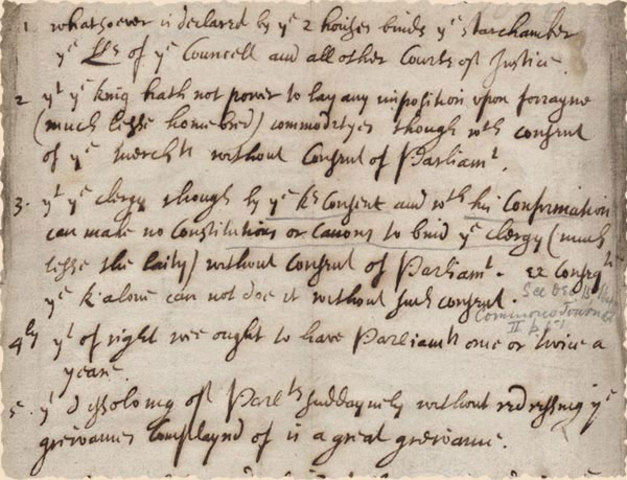 1 whatsoever is declared by yᵉ 2 houses binds yᵉ starchamber
yᵉ LLˢ of yᵉ Councell and all other Courts of Justice.
2 yᵗ yᵉ king hath not power to lay any imposition upon forrayne
(much lesse homebred) commodityes though wᵗʰ consent
of yᵉ merchᵗˢ without Consent of Parliamᵗ.
3. yᵗ yᵉ clergy though by yᵉ kˢ Consent and wᵗʰ his Confirmation
can make no Constitutions or Canons to bind yᵉ clergy (much
lesse the laity) without consent of Parliamᵗ. ex Conseqᵗⁱ
yᵉ k alone can not doe it without such consent.
See Dec 15
Commons Journal
II p
4ˡʸ yᵗ of right we ought to have Parliamᵗˢ one or twice a
yeare.
5. yᵗ dissolving of Parlᵗˢ suddaynely without redressing yᵉ
greivances Complaynd of is a great greivance.